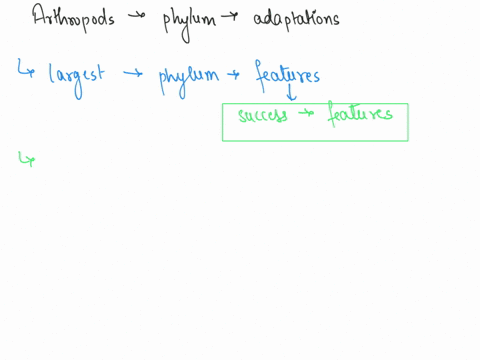 Arthropods → phylum → adaptations
↳ largest → phylum → features
↓
success → features
↳